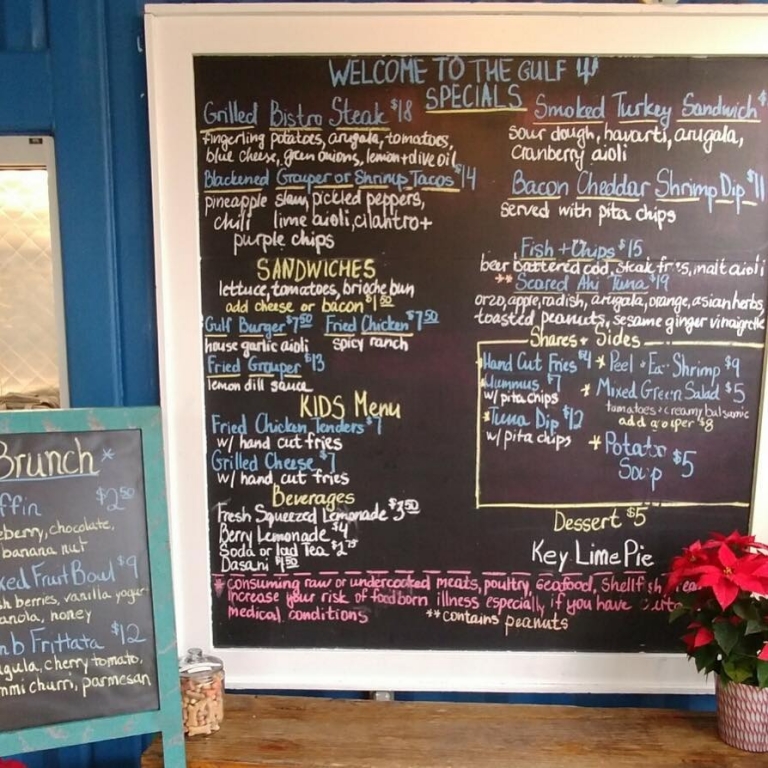 WELCOME TO THE GULF
SPECIALS
Grilled Bistro Steak $18
fingerling potatoes, arugala, tomatoes,
blue cheese, green onions, lemon + olive oil
Blackened Grouper or Shrimp Tacos $14
pineapple slaw, pickled peppers,
chili lime aioli, cilantro +
purple chips
Smoked Turkey Sandwich
sour dough, havarti, arugala,
cranberry aioli
Bacon Cheddar Shrimp Dip $11
served with pita chips
Fish + Chips $15
beer battered cod, steak fries, malt aioli
** Seared Ahi Tuna $19
orzo, apple, radish, arugala, orange, asian herbs,
toasted peanuts, sesame ginger vinaigrette
SANDWICHES
lettuce, tomatoes, brioche bun
add cheese or bacon $1.50
Gulf Burger $7.50 Fried Chicken $7.50
house garlic aioli spicy ranch
Fried Grouper $13
lemon dill sauce
KIDS Menu
Fried Chicken Tenders $7
w/ hand cut fries
Grilled Cheese $7
w/ hand cut fries
Beverages
Fresh Squeezed Lemonade $3.50
Berry Lemonade $4
Soda or Iced Tea $2.75
Dasani
Shares + Sides
Hand Cut Fries $4
Hummus $7
w/ pita chips
*Tuna Dip $12
w/ pita chips
* Peel + Eat Shrimp $9
* Mixed Green Salad $5
tomatoes + creamy balsamic
add grouper $8
* Potato
Soup $5
Dessert $5
Key Lime Pie
* consuming raw or undercooked meats, poultry, seafood, shellfish,
increase your risk of foodborn illness especially if you have
medical conditions
** contains peanuts
Brunch*
ffin $2.50
eberry, chocolate,
banana nut
xed Fruit Bowl $9
sh berries, vanilla yogur
anola, honey
mb Frittata $12
ugula, cherry tomato,
mmi churri, parmesan